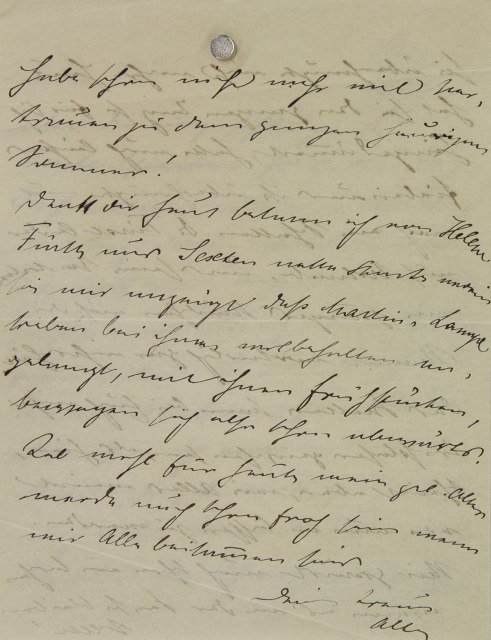 habe schon nicht mehr viel Ver,
trauen zu dem ganzen heurigen
Sommer!
Denk dir heut bekam ich von Helene
Fürth aus Sexten nette Karte worin
sie mir anzeigt daß Martin u.
haben bei ihnen wolbehalten an,
gelangt, mit ihnen frühstücken,
bewegen sich also schon aufwärts.
Leb wohl für heute mein gel. Alter
werde auch schon froh sein wenn
wir Alle beisammen sind
Dein treue